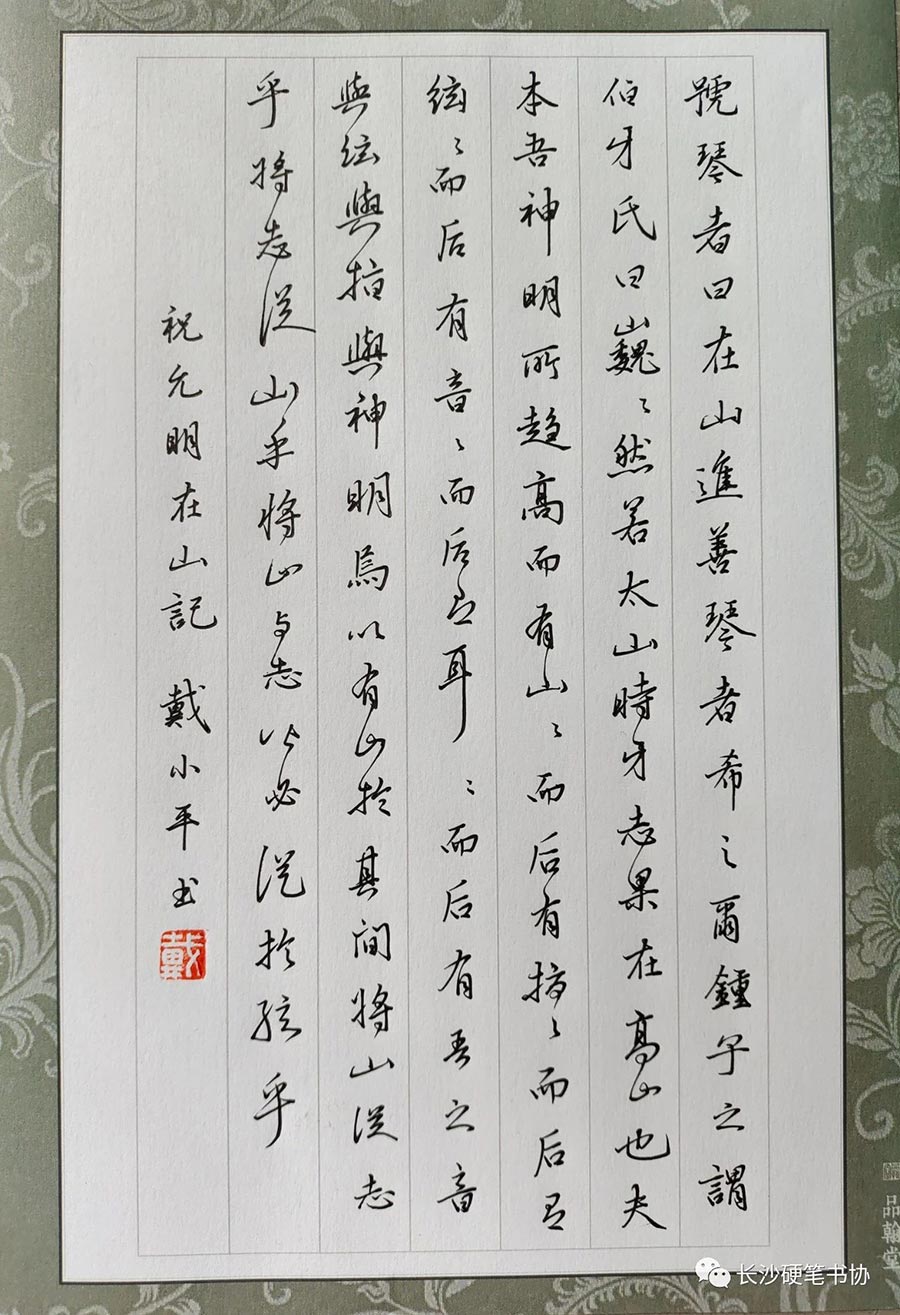 號琴者曰在山進善琴者希之爾鍾子之謂
伯牙氏曰巍〻然若太山時牙志果在高山也夫
本吾神明所趋高而有山〻而后有指〻而后有
絃〻而后有音〻而后有耳〻而后有吾之音
與絃與指與神明焉以有山於其间將山從志
乎將志從山乎將山与志必從於弦乎
祝允明在山記 戴小平书
戴
品翰堂
长沙硬笔书协